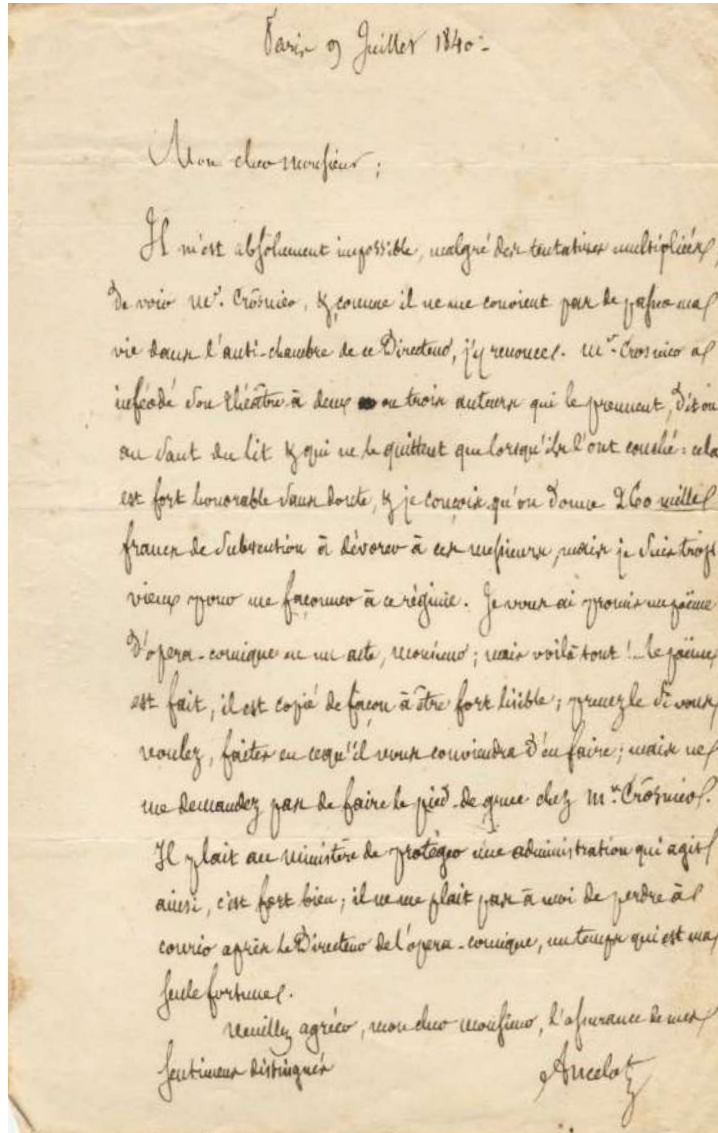 Paris 9 Juillet 1840.
Mon cher monsieur ;
Il m'est absolument impossible, malgré des tentatives multipliées,
de voir mr. Crosnier, & comme il ne me convient pas de passer ma
vie dans l'anti-chambre de ce Directeur, j'y renonce. mr. Crosnier a
inféodé son théâtre à deux ou trois auteurs qui le prennent, dit on
au saut du lit & qui ne le quittent que lorsqu'ils l'ont couché : cela
est fort honorable sans doute, & je conçois qu'on donne 260 mille
francs de subvention à dévorer à ces messieurs, mais je suis trop
vieux pour me façonner à ce régime. Je vous ai promis un poëme
d'opera-comique en un acte, monsieur ; mais voilà tout ! - le poëme
est fait, il est copié de façon à être fort lisible ; prenez le si vous
voulez, faites en ce qu'il vous conviendra d'en faire ; mais ne
me demandez pas de faire le pied-de-grue chez mr. Crosnier.
Il plait au ministère de protéger une administration qui agit
ainsi, c'est fort bien ; il ne me plait pas à moi de perdre à
courir après le Directeur de l'opera-comique, un temps qui est ma
seule fortune.
Veuillez agréer, mon cher monsieur, l'assurance de mes
sentimens distingués
Ancelot